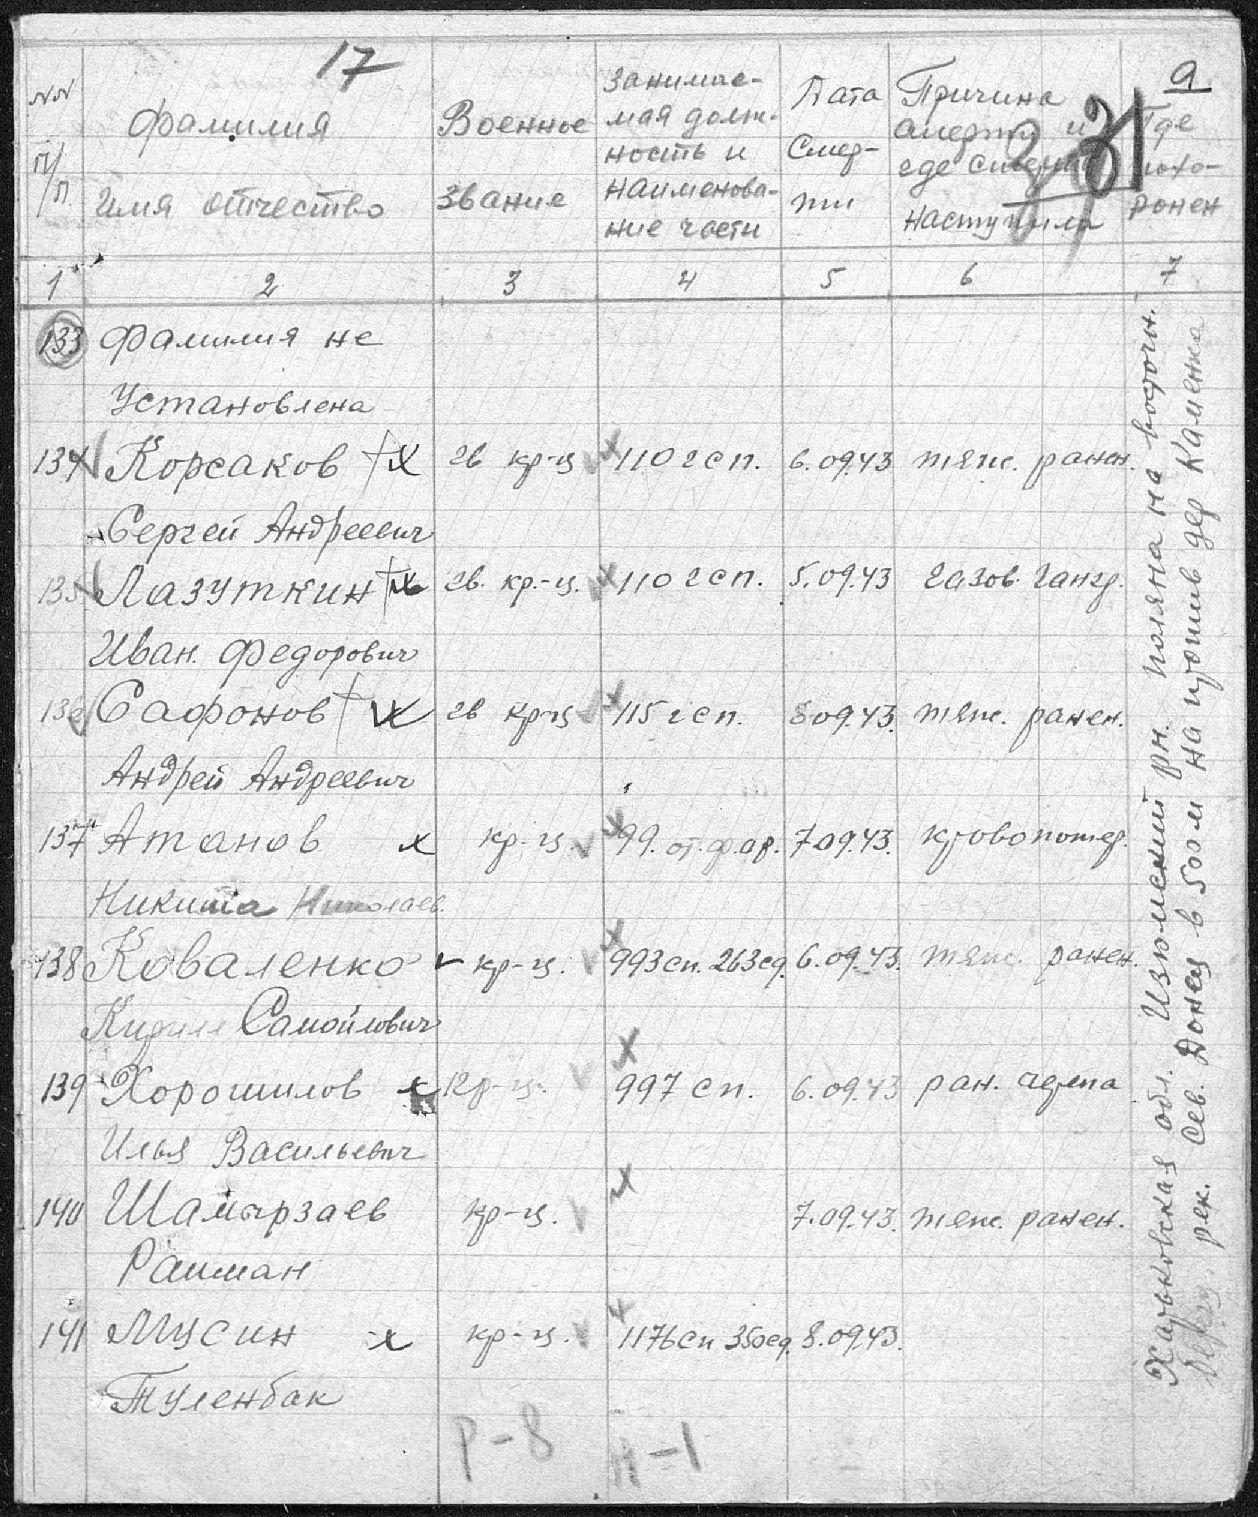 17
9
31
NN п/п.
Фамилия
Имя отчество
Военное
звание
Занимае-
мая долж-
ность и
наименова-
ние части
Дата
Смер-
ти
Причина
смерти и
где смерть
наступила
Где
похо-
ронен
1 2 3 4 5 6 7
133 Фамилия не
Установлена
134 Корсаков х гв кр-ц х 110 гсп. 6.09.43 тяж. ранен.
Сергей Андреевич
135 Лазуткин х гв. кр.-ц. х 110 гсп. 5.09.43 газов. гангр.
Иван. Федорович
136 Сафонов х гв кр-ц х 115 гсп. 8 09.43. тяж. ранен.
Андрей Андреевич
137 Атанов х кр-ц. х 99. от. ф. ар. 7.09.43. кровопотер.
Никита Николаев.
138 Коваленко кр-ц. х 993 сп. 263 сд. 6.09.43. тяж. ранен.
Кирилл Самойлович
139 Хорошилов х кр-ц. х 997 сп. 6.09.43 ран. черепа
Илья Васильевич
140 Шамырзаев кр-ц. х 7.09.43. тяж. ранен.
Раиман
141 Мусин х кр-ц. х 1176 сп 350 сд. 8.09.43.
Туленбак
Р-8 Н-1
Харьковская обл. Изюмский рн. поляна на восточн.
берегу рек. Сев. Донец в 500 м на против дер Каменка